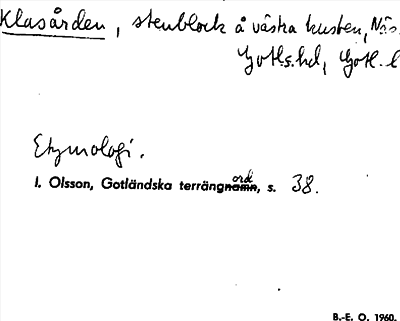 Klasården, stenblock å västra kusten, Näs.
Gotl.s.hd, Gotl. l
Etymologi.
I. Olsson, Gotländska terrängord, s. 38.
B.-E. O. 1960.